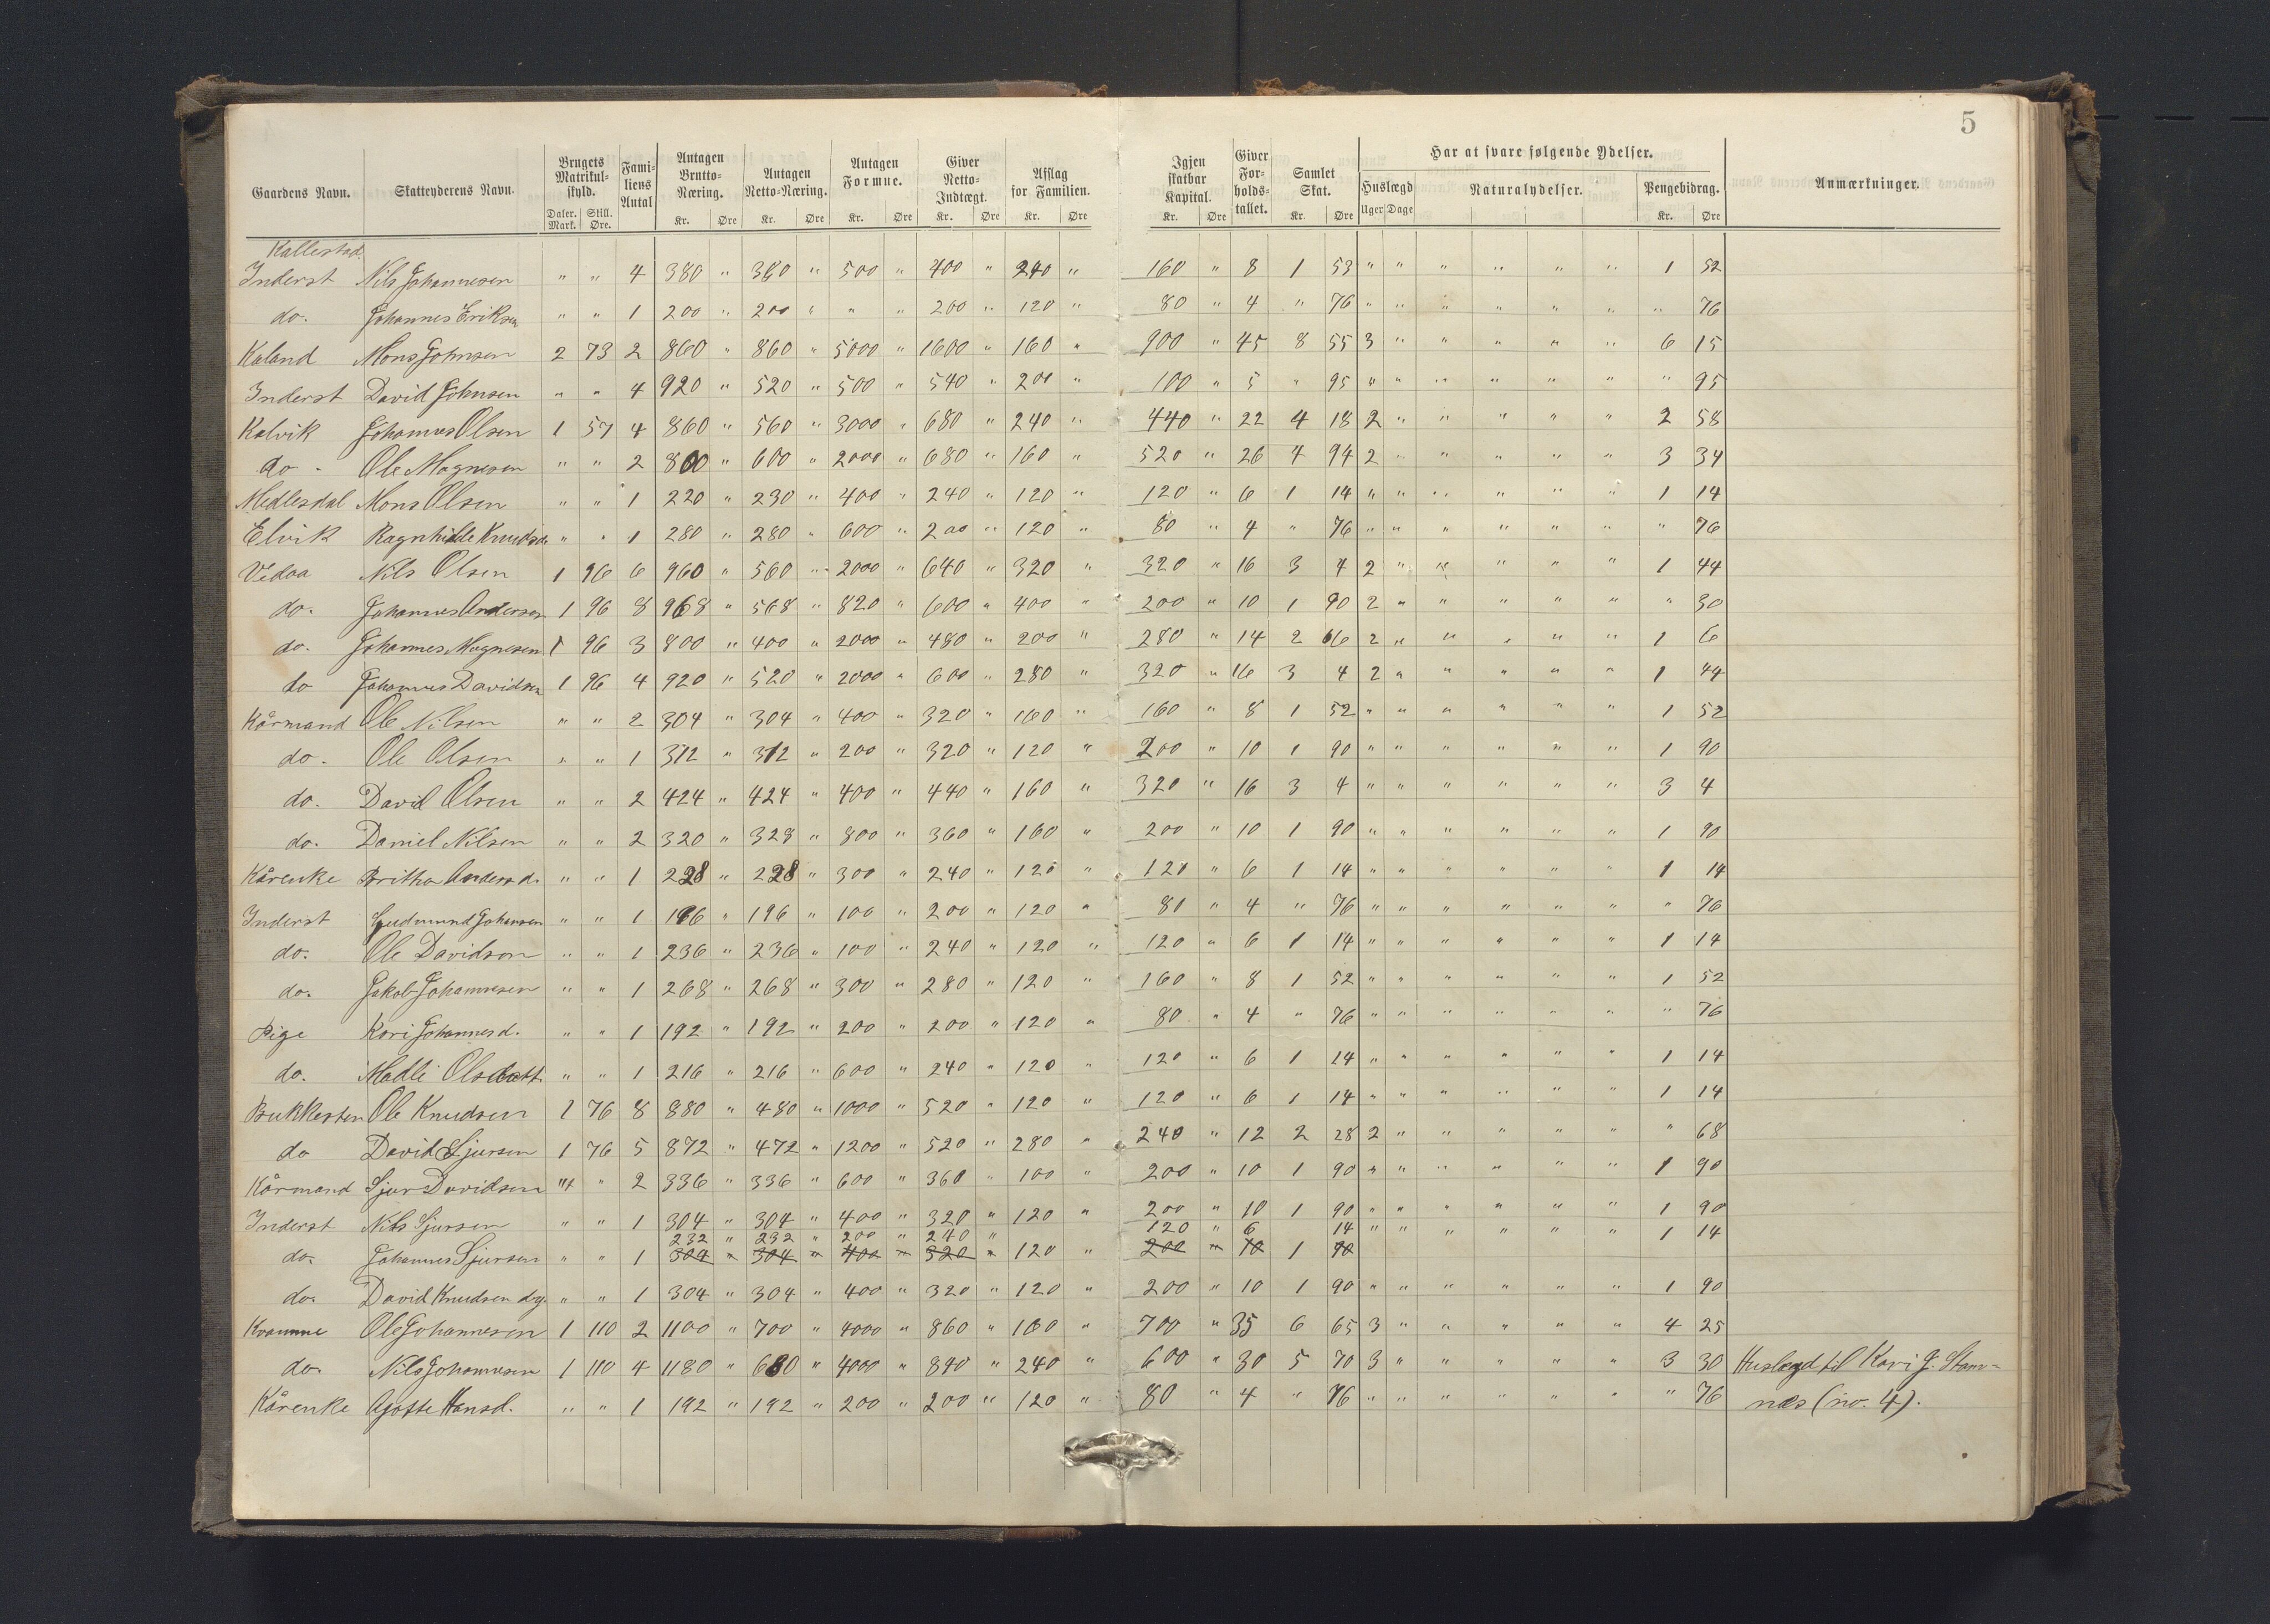 5
Gaardens Navn. Skatteyderens Navn. Brugets Matrikul-skyld. Daler. Mark. Skill. Øre. Fami-liens Antal Antagen Brutto-Næring. Kr. Øre Antagen Netto-Næring. Kr. Øre Antagen Formue. Kr. Øre Giver Netto-Indtægt. Kr. Øre Afslag for Familien. Kr. Øre Igjen skatbar Kapital. Kr. Øre Giver For-holds-tallet. Samlet Skat. Kr. Øre Har at svare følgende Ydelser. Huslægd Uger Dage Naturalydelser. Pengebidrag. Kr. Øre Anmærkninger.
Kallestad.
Inderst Nils Johannesen " " 4 380 " 380 " 500 " 400 " 240 " 160 " 8 1 53 " " " " " " 1 52
do. Johannes Eriksen " " 1 200 " 200 " " " 200 " 120 " 80 " 4 " 76 " " " " " " " 76
Kaland Mons Johnsen 2 73 2 860 " 860 " 5000 " 1600 " 160 " 900 " 45 8 55 3 " " " " " 6 15
Inderst David Johnsen " " 4 920 " 520 " 500 " 540 " 200 " 100 " 5 " 95 " " " " " " " 95
Kalvik Johannes Olsen 1 57 4 860 " 560 " 3000 " 680 " 240 " 440 " 22 4 18 2 " " " " " 2 58
do. Ole Magnesen " " 2 800 " 600 " 2000 " 680 " 160 " 520 " 26 4 94 2 " " " " " 3 34
Medlesdal Mons Olsen " " 1 220 " 230 " 400 " 240 " 120 " 120 " 6 1 14 " " " " " " 1 14
Elvik Ragnhilde Knudsd. " " 1 280 " 280 " 600 " 200 " 120 " 80 " 4 " 76 " " " " " " " 76
Vedaa Nils Olsen 1 96 6 960 " 560 " 2000 " 640 " 320 " 320 " 16 3 4 2 " " " " " 1 44
do. Johannes Andersen 1 96 8 968 " 568 " 820 " 600 " 400 " 200 " 10 1 90 2 " " " " " " 30
do. Johannes Magnesen 1 96 3 800 " 400 " 2000 " 480 " 200 " 280 " 14 2 66 2 " " " " " 1 6
do Johannes Davidsen 1 96 4 920 " 520 " 2000 " 600 " 280 " 320 " 16 3 4 2 " " " " " 1 44
Kårmand Ole Nilsen " " 2 304 " 304 " 400 " 320 " 160 " 160 " 8 1 52 " " " " " " 1 52
do. Ole Olsen " " 1 312 " 312 " 200 " 320 " 120 " 200 " 10 1 90 " " " " " " 1 90
do. David Olsen " " 2 424 " 424 " 400 " 440 " 160 " 320 " 16 3 4 " " " " " " 3 4
do. Daniel Nilsen " " 2 320 " 328 " 800 " 360 " 160 " 200 " 10 1 90 " " " " " " 1 90
Kårenke Britha Andersd. " " 1 228 " 228 " 300 " 240 " 120 " 120 " 6 1 14 " " " " " " 1 14
Inderst Gudmund Johansen " " 1 196 " 196 " 100 " 200 " 120 " 80 " 4 " 76 " " " " " " " 76
do. Ole Davidson " " 1 236 " 236 " 100 " 240 " 120 " 120 " 6 1 14 " " " " " " 1 14
do. Jakob Johannesen " " 1 268 " 268 " 300 " 280 " 120 " 160 " 8 1 52 " " " " " " 1 52
Pige Kari Johannesd. " " 1 192 " 192 " 200 " 200 " 120 " 80 " 4 " 76 " " " " " " " 76
do. Madli Olsdatt. " " 1 216 " 216 " 600 " 240 " 120 " 120 " 6 1 14 " " " " " " 1 14
Bukkesten Ole Knudsen 1 76 8 880 " 480 " 1000 " 520 " 120 " 120 " 6 1 14 " " " " " " 1 14
do David Sjursen 1 76 5 872 " 472 " 1200 " 520 " 280 " 240 " 12 2 28 2 " " " " " " 68
Kårmand Sjur Davidsen " " 2 336 " 336 " 600 " 360 " 160 " 200 " 10 1 90 " " " " " " 1 90
Inderst Nils Sjursen " " 1 304 " 304 " 400 " 320 " 120 " 200 " 10 1 90 " " " " " " 1 90
232 " 232 " 200 " 240 " 120 " 6 14 " " " " " " 1 14
do. Johannes Sjursen " " 1 304 " 304 " 400 " 320 " 120 " 200 " 10 1 90
do. David Knudsen dsg. " " 1 304 " 304 " 400 " 320 " 120 " 200 " 10 1 90 " " " " " " 1 90
Kvamme Ole Johannesen 1 110 2 1100 " 700 " 4000 " 860 " 160 " 700 " 35 6 65 3 " " " " " 4 25
do. Nils Johannesen 1 110 4 1180 " 680 " 4000 " 840 " 240 " 600 " 30 5 70 3 " " " " " 3 30 Huslægd til Kari J. Stam-
Kårenke Agatte Hansd. " " 1 192 " 192 " 200 " 200 " 120 " 80 " 4 " 76 " " " " " " " 76 næs (no. 4).